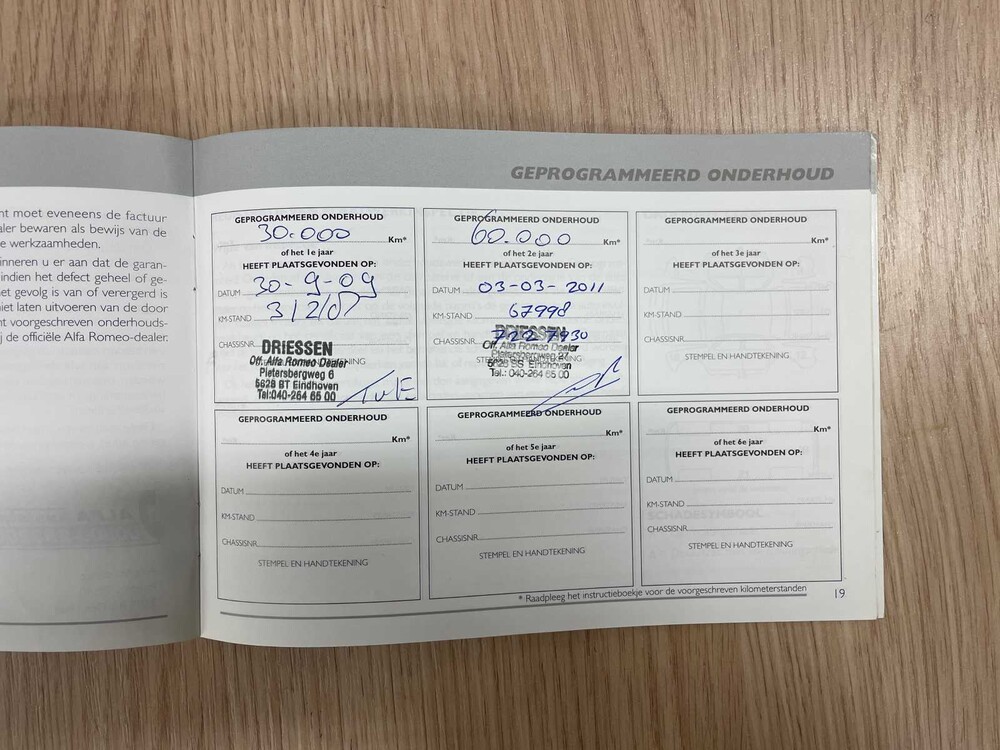 GEPROGRAMMEERD ONDERHOUD
nt moet eveneens de factuur
aler bewaren als bewijs van de
e werkzaamheden.
inneren u er aan dat de garan-
indien het defect geheel of ge-
et gevolg is van of verergerd is
niet laten uitvoeren van de door
nt voorgeschreven onderhouds-
j de officiële Alfa Romeo-dealer.
GEPROGRAMMEERD ONDERHOUD
30.000 Km*
of het 1e jaar
HEEFT PLAATSGEVONDEN OP:
DATUM 30-9-09
KM-STAND
CHASSISNR.
DRIESSEN
Off. Alfa Romeo Dealer
Pietersbergweg 6
5628 BT Eindhoven
Tel:040-264 65 00
GEPROGRAMMEERD ONDERHOUD
60.000 Km*
of het 2e jaar
HEEFT PLAATSGEVONDEN OP:
DATUM 03-03-2011
KM-STAND 67998
CHASSISNR. 7227930
DRIESSEN
Off. Alfa Romeo Dealer
Pietersbergweg 27
5628 BS Eindhoven
Tel.: 040-264 65 00
GEPROGRAMMEERD ONDERHOUD
Km*
of het 3e jaar
HEEFT PLAATSGEVONDEN OP:
DATUM
KM-STAND
CHASSISNR.
STEMPEL EN HANDTEKENING
GEPROGRAMMEERD ONDERHOUD
Km*
of het 4e jaar
HEEFT PLAATSGEVONDEN OP:
DATUM
KM-STAND
CHASSISNR.
STEMPEL EN HANDTEKENING
GEPROGRAMMEERD ONDERHOUD
Km*
of het 5e jaar
HEEFT PLAATSGEVONDEN OP:
DATUM
KM-STAND
CHASSISNR.
STEMPEL EN HANDTEKENING
GEPROGRAMMEERD ONDERHOUD
Km*
of het 6e jaar
HEEFT PLAATSGEVONDEN OP:
DATUM
KM-STAND
CHASSISNR.
STEMPEL EN HANDTEKENING
* Raadpleeg het instructieboekje voor de voorgeschreven kilometerstanden
19